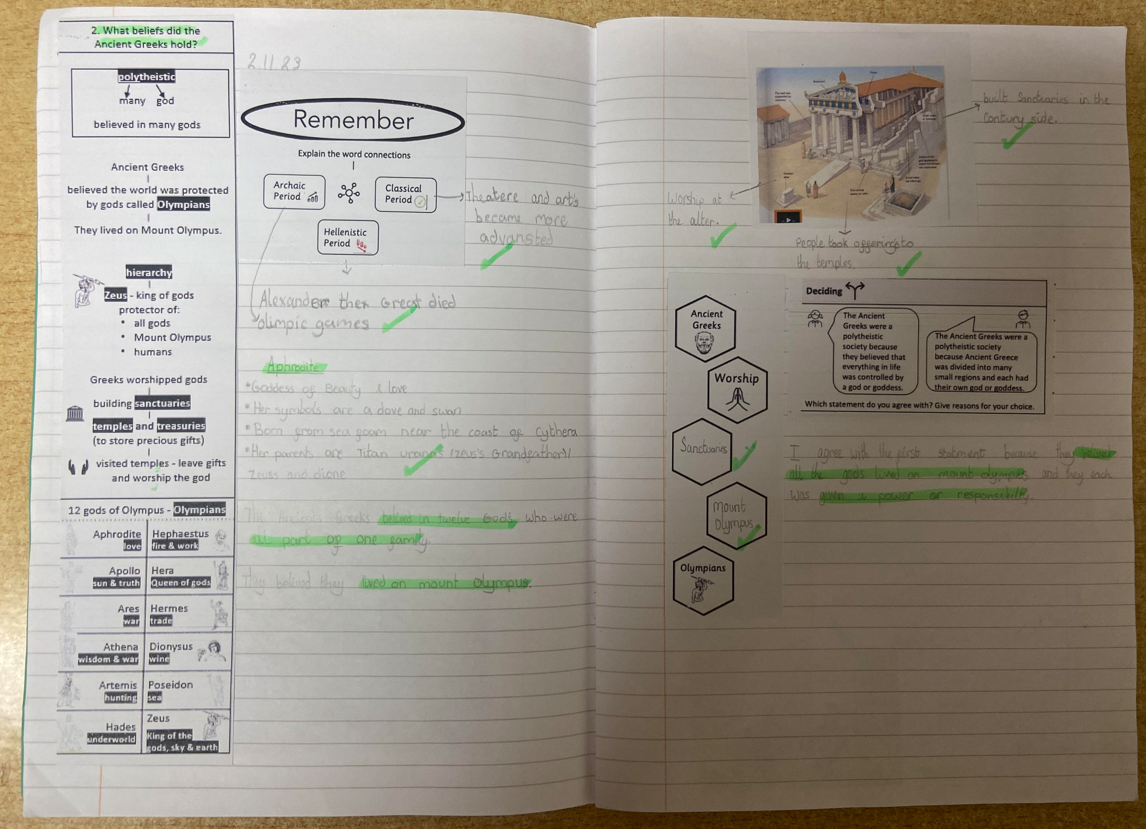 2. What beliefs did the
Ancient Greeks hold?
polytheistic
many god
believed in many gods
Ancient Greeks
believed the world was protected
by gods called Olympians
They lived on Mount Olympus.
hierarchy
Zeus - king of gods
protector of:
• all gods
• Mount Olympus
• humans
Greeks worshipped gods
building sanctuaries
temples and treasuries
(to store precious gifts)
visited temples - leave gifts
and worship the god
12 gods of Olympus - Olympians
Aphrodite Hephaestus
love fire & work
Apollo Hera
sun & truth Queen of gods
Ares Hermes
war trade
Athena Dionysus
wisdom & war wine
Artemis Poseidon
hunting sea
Hades Zeus
underworld King of the
gods, sky & earth
2.11.23
Remember
Explain the word connections
Archaic
Period
Classical
Period
Hellenistic
Period
Theatere and arts
became more
advansted
Alexander ther Great died
olimpic games
Aphrodite
*Goddess of Beauty & love
*Her symbols are a dove and swan
*Born from sea foam near the coast of Cythera
*Her parents are Titan (Zeus's Grandfather)/
Zeuss and dione
Greeks belived in twelve Gods, who were
all part of one family.
They belived they lived on mount Olympus.
built Sanctuaris in the
Contury side.
Worship at
the alter.
People took offerings to
the temples.
Ancient
Greeks
Worship
Sanctuaries
Mount
Olympus
Olympians
Deciding
The Ancient
Greeks were a
polytheistic
society because
they believed that
everything in life
was controlled by
a god or goddess.
The Ancient Greeks were a
polytheistic society
because Ancient Greece
was divided into many
small regions and each had
their own god or goddess.
Which statement do you agree with? Give reasons for your choice.
I agree with the first statement because they
all the gods lived on mount olympus and they each
was given a power or responsibility.